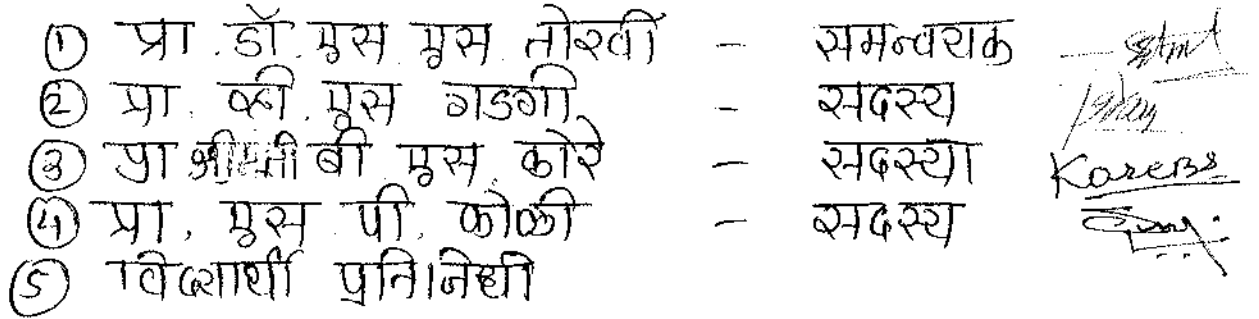 ① प्रा. डॉ. एस एस तोरवी - समन्वयक
② प्रा. व्ही. एस गडगी - सदस्य
③ प्रा श्रीमती बी एस. कोरे - सदस्या KoreBS
④ प्रा. एस पी. कोळी - सदस्य
⑤ विद्यार्थी प्रतिनिधी